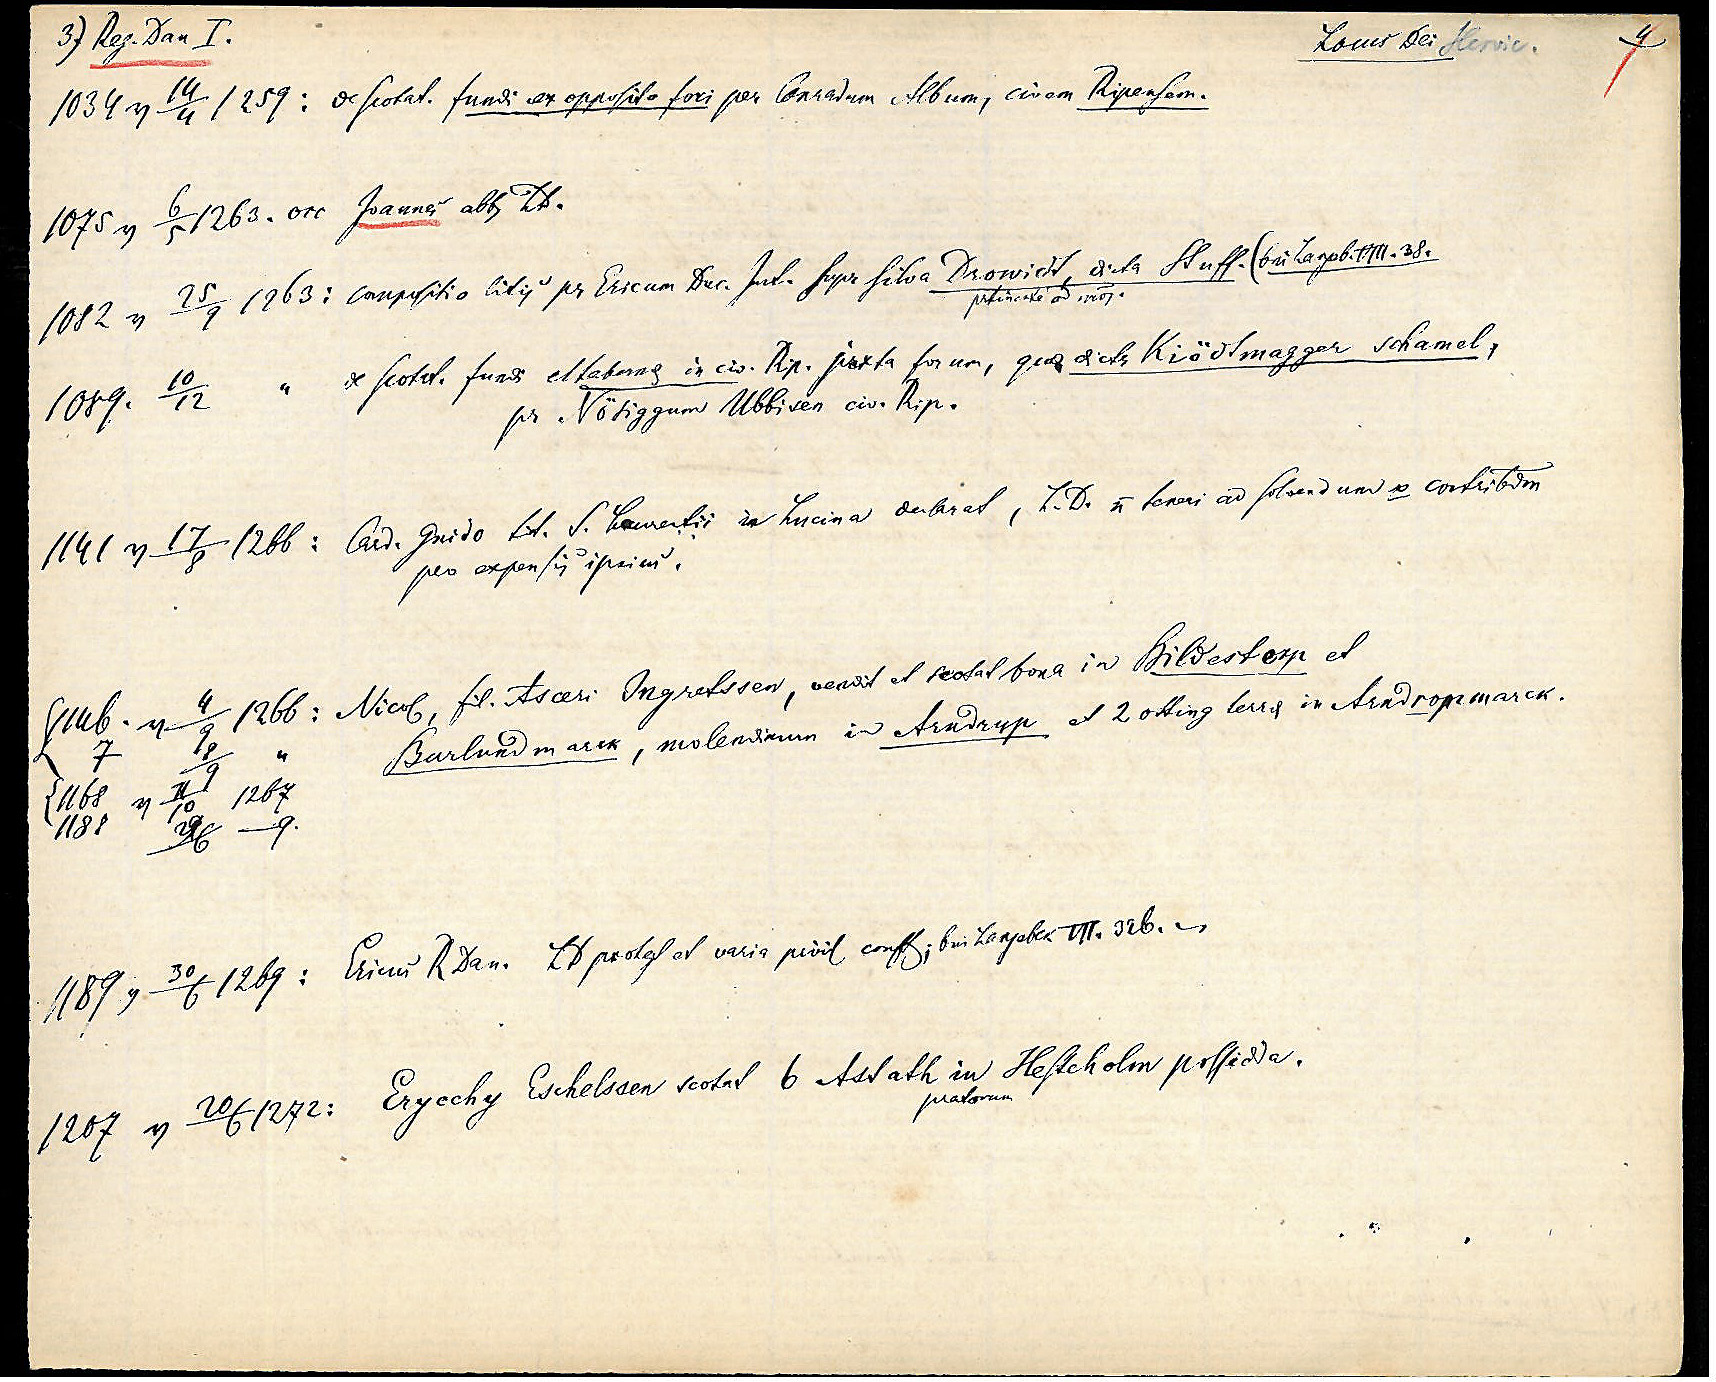 3) Reg. Dan I. Locus Dei Slesvic. 4
1034 v 14/4 1259: de scotat. fundi ex opposito fori per Conradum Album, civem Ripensem.
1075 v 6/5 1263. occ Joannes abb LD.
1082 v 25/9 1263: compositio litis per Ericum Duc. Jut. super silva Drowidt, dicta Stuff. (bei Langeb. VIII. 38.
pertinente ad
1089. 10/12 " de scotat. fundi et taberna in civ. Rip. juxta forum, qua dicta Kiödtmagger schamel,
per Nötiggum Ubbisen civ. Rip.
1141 v 17/8 1266: Card. Guido tit. S. Laurentii in Lucina declarat, L.D. n teneri ad solvendum contribdm
pro expensis ipsius.
1146. v 4/9 1266: Nicol, fil. Asceri Ingretssen, vendit et scotat bona in Hildestorp et
7 18/9 " Burlundmarck, molendinum in Arndrup et 2 otting terra in Arndropmarck.
1168 v 11/10 1267
1188 29/6 — 9.
1189 v 30/6 1269: Ericus R Dan. LD proteg et varia privil conf; bei Langebek VIII. 326.
1207 v 20/6 1272: Erycchy Eschelssen scotat 6 Astath in Hestcholm possidda.
pratorum